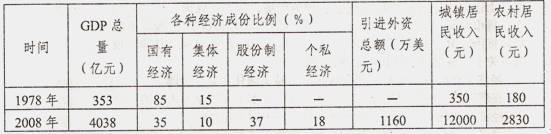 时间 GDP 总量（亿元） 各种经济成份比例（%） 引进外资总额（万美元） 城镇居民收入（元） 农村居民收入（元）
国有经济 集体经济 股份制经济 个私经济
1978 年 353 85 15 — — — 350 180
2008 年 4038 35 10 37 18 1160 12000 2830